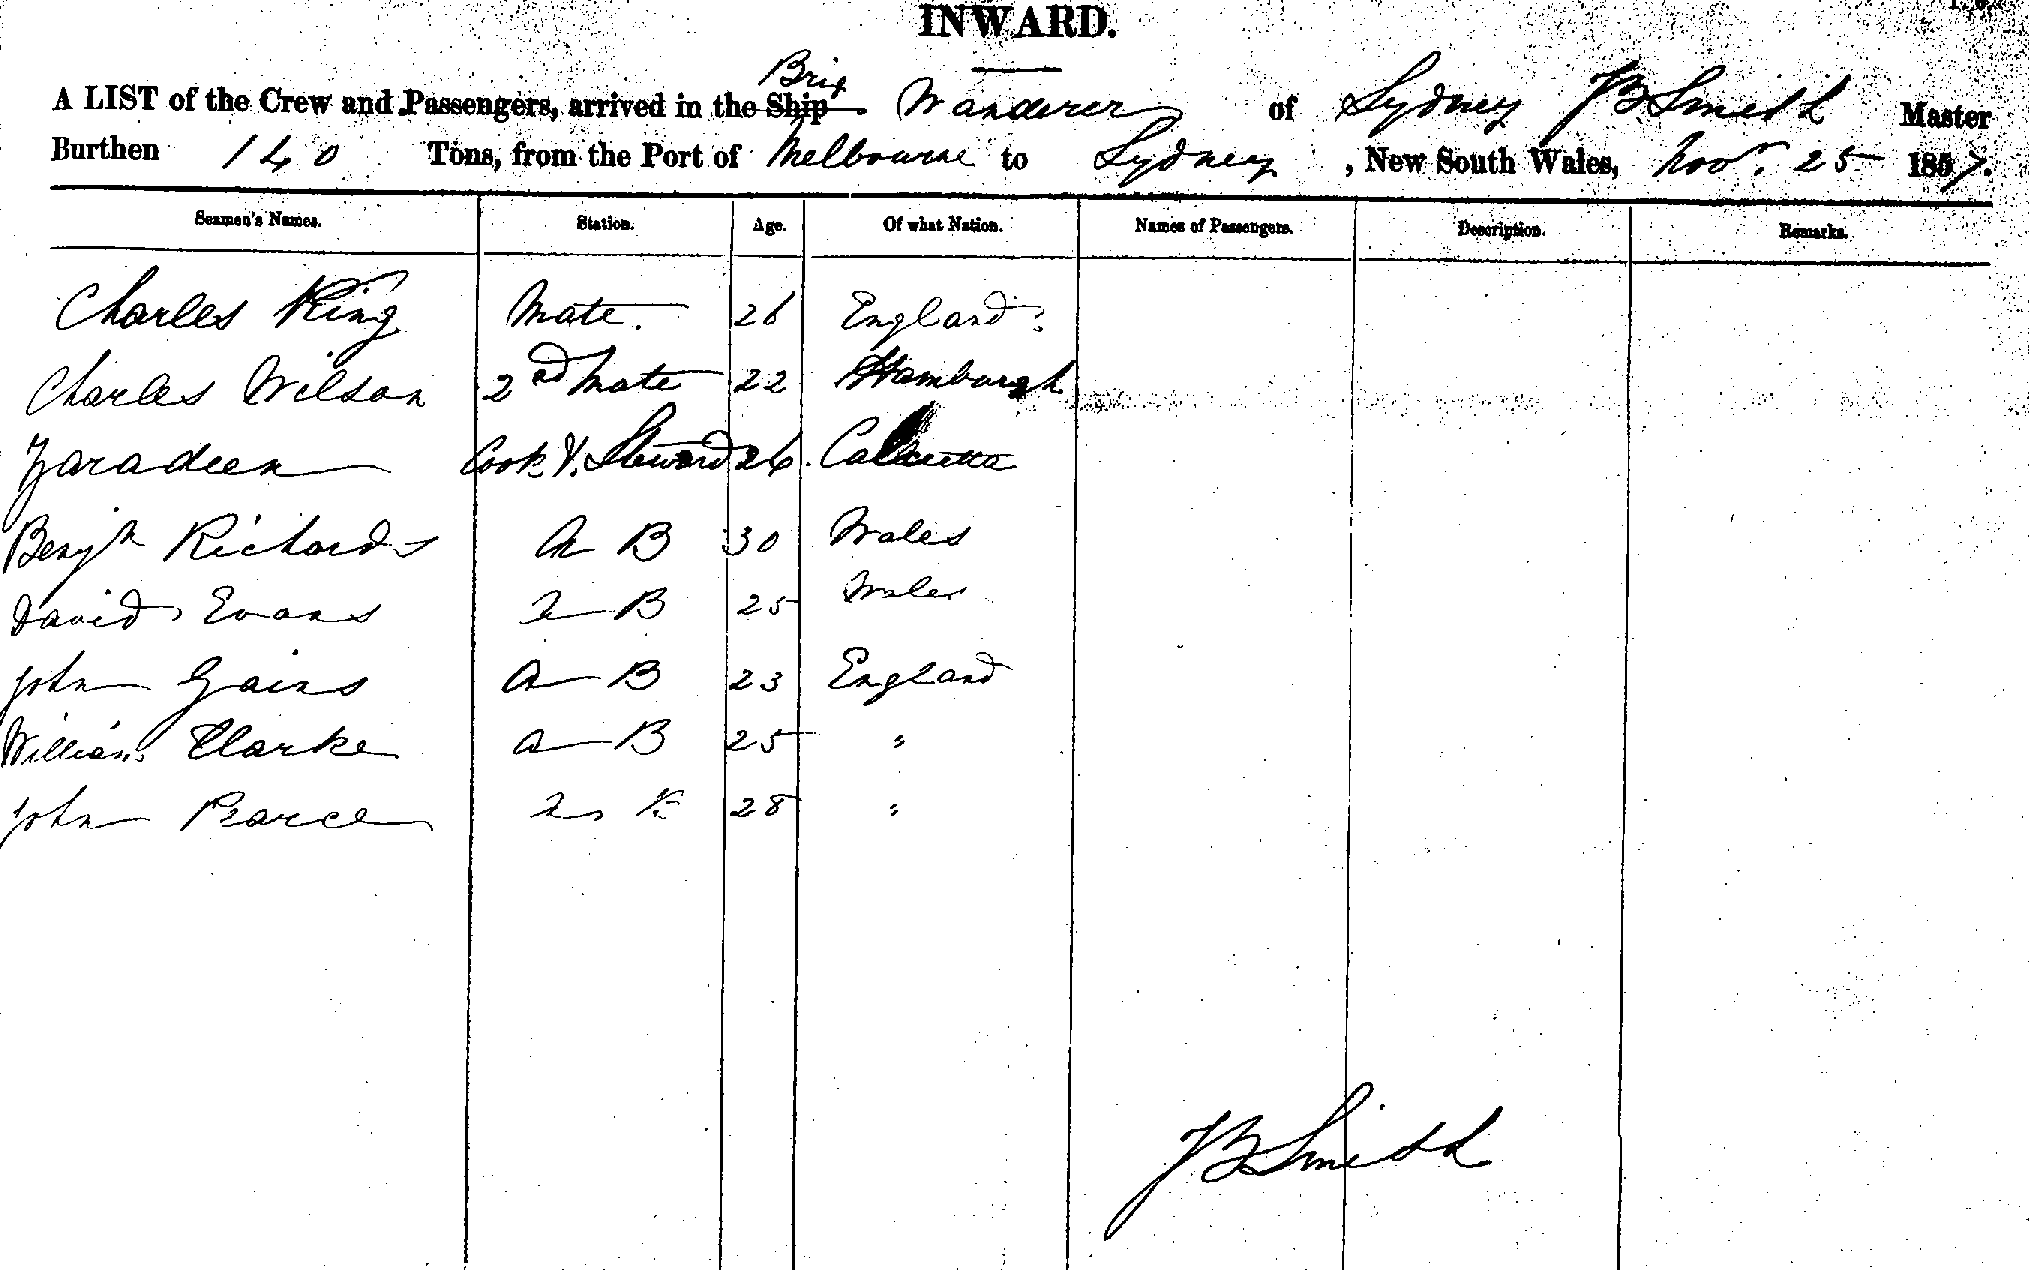 INWARD.
A LIST of the Crew and Passengers, arrived in the Ship Brig Wanderer of Sydney JB Smith Master
Burthen 140 Tons, from the Port of Melbourne to Sydney, New South Wales, Novr. 25 1857.
Seamen's Names. Station. Age. Of what Nation. Names of Passengers. Description. Remarks.
Charles King Mate. 26 England
Charles Wilson 2nd Mate 22 Hamburgh
Cook & Steward 26 Calcutta
Benjn Richards A B 30 Wales
David Evans A B 25 Wales
John Gains A B 23 England
William Clarke A B 25 "
John Pearce 28 "
JB Smith